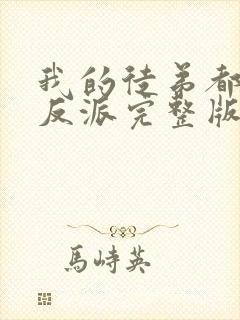 我的徒弟都
反派完整版
馬峙英